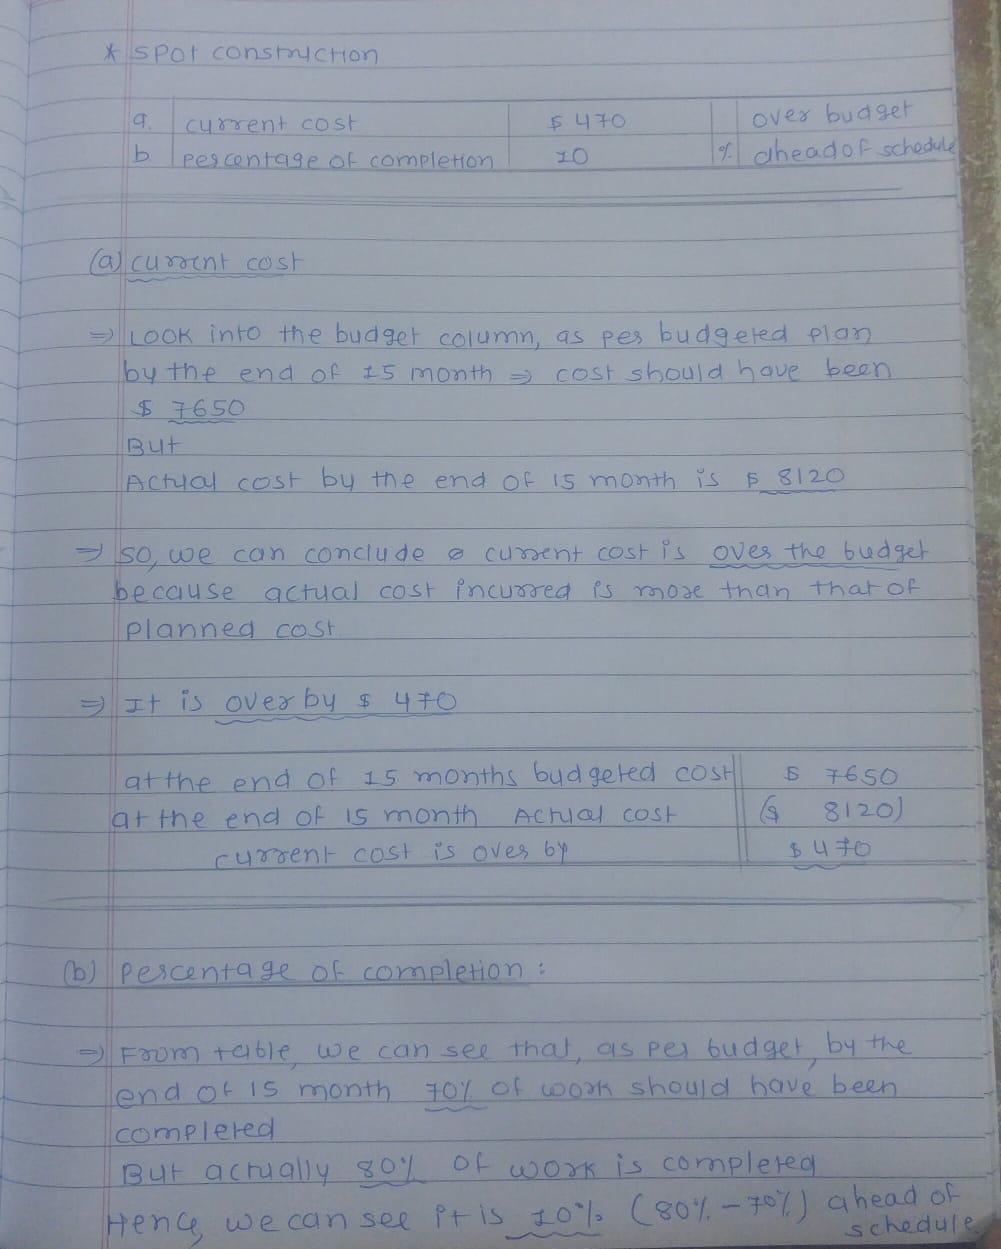 * Spot construction
a. current cost $ 470 over budget
b percentage of completion 10 % ahead of schedule
(a) current cost
⇒ Look into the budget column, as per budgeted plan
by the end of 15 month ⇒ cost should have been
$ 7650
But
Actual cost by the end of 15 month is $ 8120
⇒ so, we can conclude current cost is over the budget
because actual cost incurred is more than that of
planned cost
⇒ It is over by $ 470
at the end of 15 months budgeted cost $ 7650
at the end of 15 month Actual cost ($ 8120)
current cost is over by $ 470
(b) percentage of completion :
⇒ From table, we can see that, as per budget, by the
end of 15 month 70% of work should have been
completed
But actually 80% of work is completed
Hence, we can see it is 10% (80% - 70%) ahead of
schedule